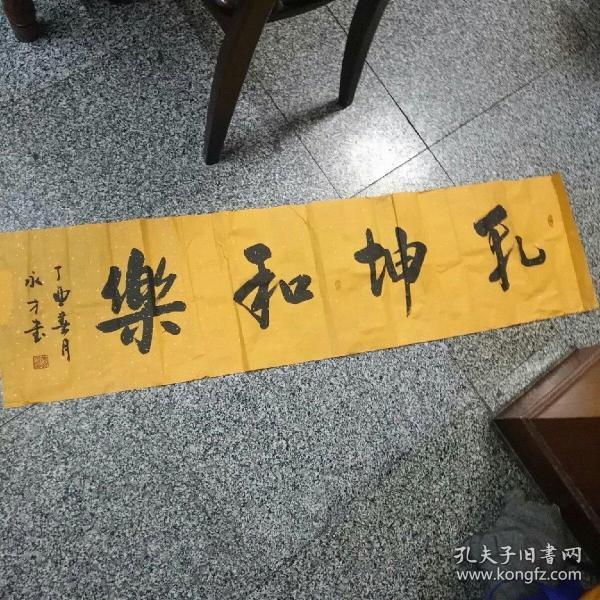 乾坤和樂
丁酉春月
永才書
孔夫子旧書网
www.kongfz.com